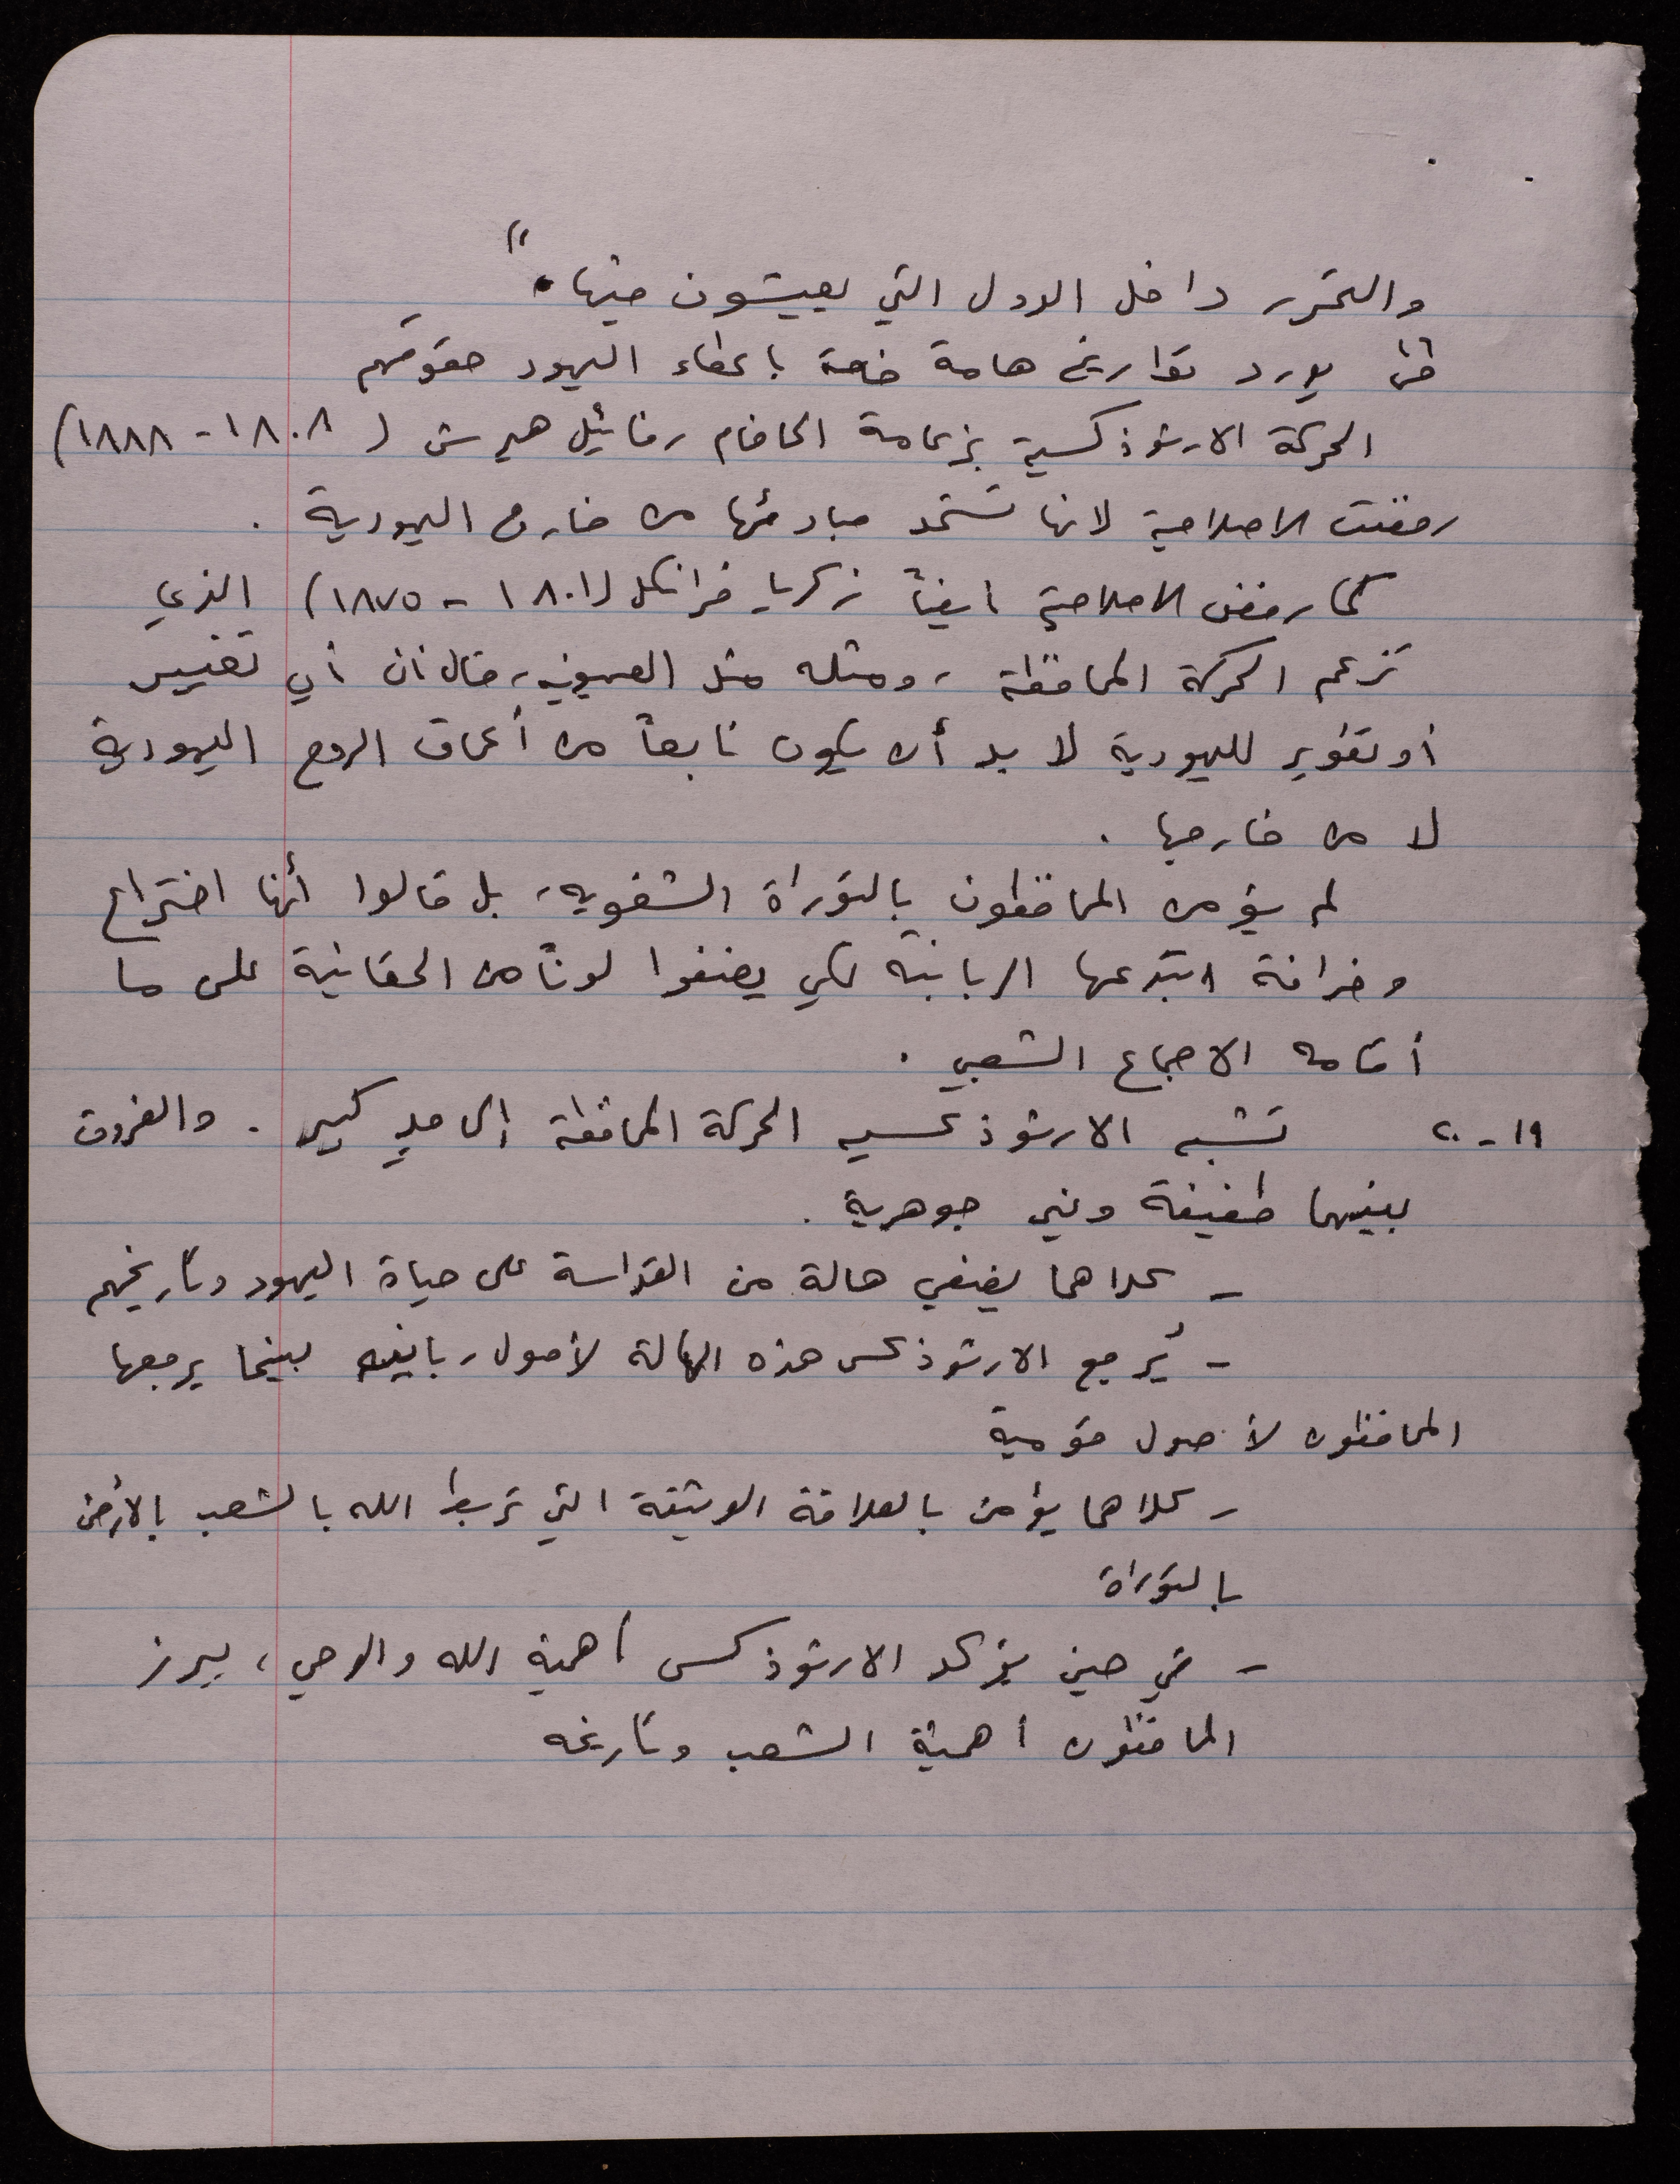 والتحرر داخل الدول التي يعيشون فيها."
يورد تواريخ هامة خاصة باعطاء اليهود حقوقهم
الحركة الارثوذكسية بزعامة الحاخام رفائيل هيرش (١٨٠٨ - ١٨٨٨)
رفضت الاصلاحية لانها تستمد مبادئها من خارج اليهودية .
كما رفض الاصلاحية ايضاً زكريا فرانكل (١٨٠١ - ١٨٧٥) الذي
تزعم الحركة المحافظة ، ومثله مثل الصهيونية ، قال أن أي تغيير
أو تطوير لليهودية لا بد أن يكون نابعاً من أعماق الروح اليهودية
لا من خارجها .
لم يؤمن المحافظون بالتوراة الشفوية ، بل قالوا أنها اختراع
وخرافة ابتدعها الربانية لكي يضفوا لوناً من الحقانية على ما
أقامه الاجماع الشعبي .
١٩ - ٢٠ تشبه الارثوذكسيه الحركة المحافظة إلى مدٍ كبير . والفروق
بينهما طفيفة وغير جوهرية .
- كلاهما يضفي هالة من القداسة على حياة اليهود وتاريخهم
- يُرجع الارثوذكس هذه الهالة لأصول ربانيه بينما يرجعها
المحافظون لأصول قومية
- كلاهما يؤمن بالعلاقة الوثيقة التي تربط الله بالشعب بالأرض
بالتوراة
- في حين يؤكد الارثوذكس أهمية الله والوحي ، يبرز
المحافظون أهمية الشعب وتاريخه